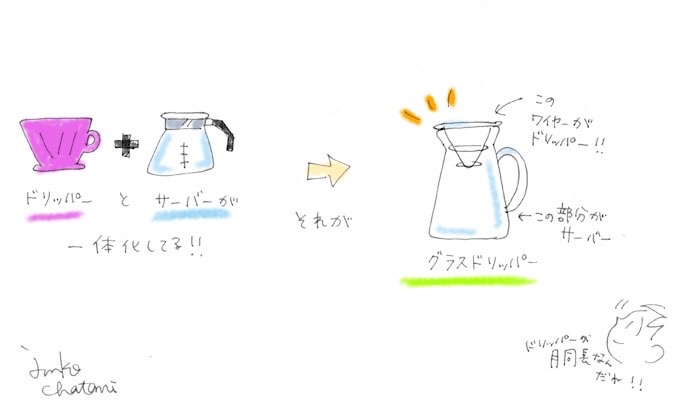 ドリッパー と サーバーが
一体化してる!!
それが
この
ワイヤーが
ドリッパー!!
←この部分が
サーバー
グラスドリッパー
ドリッパーが
胴長なん
だね!!
Junko
chatani